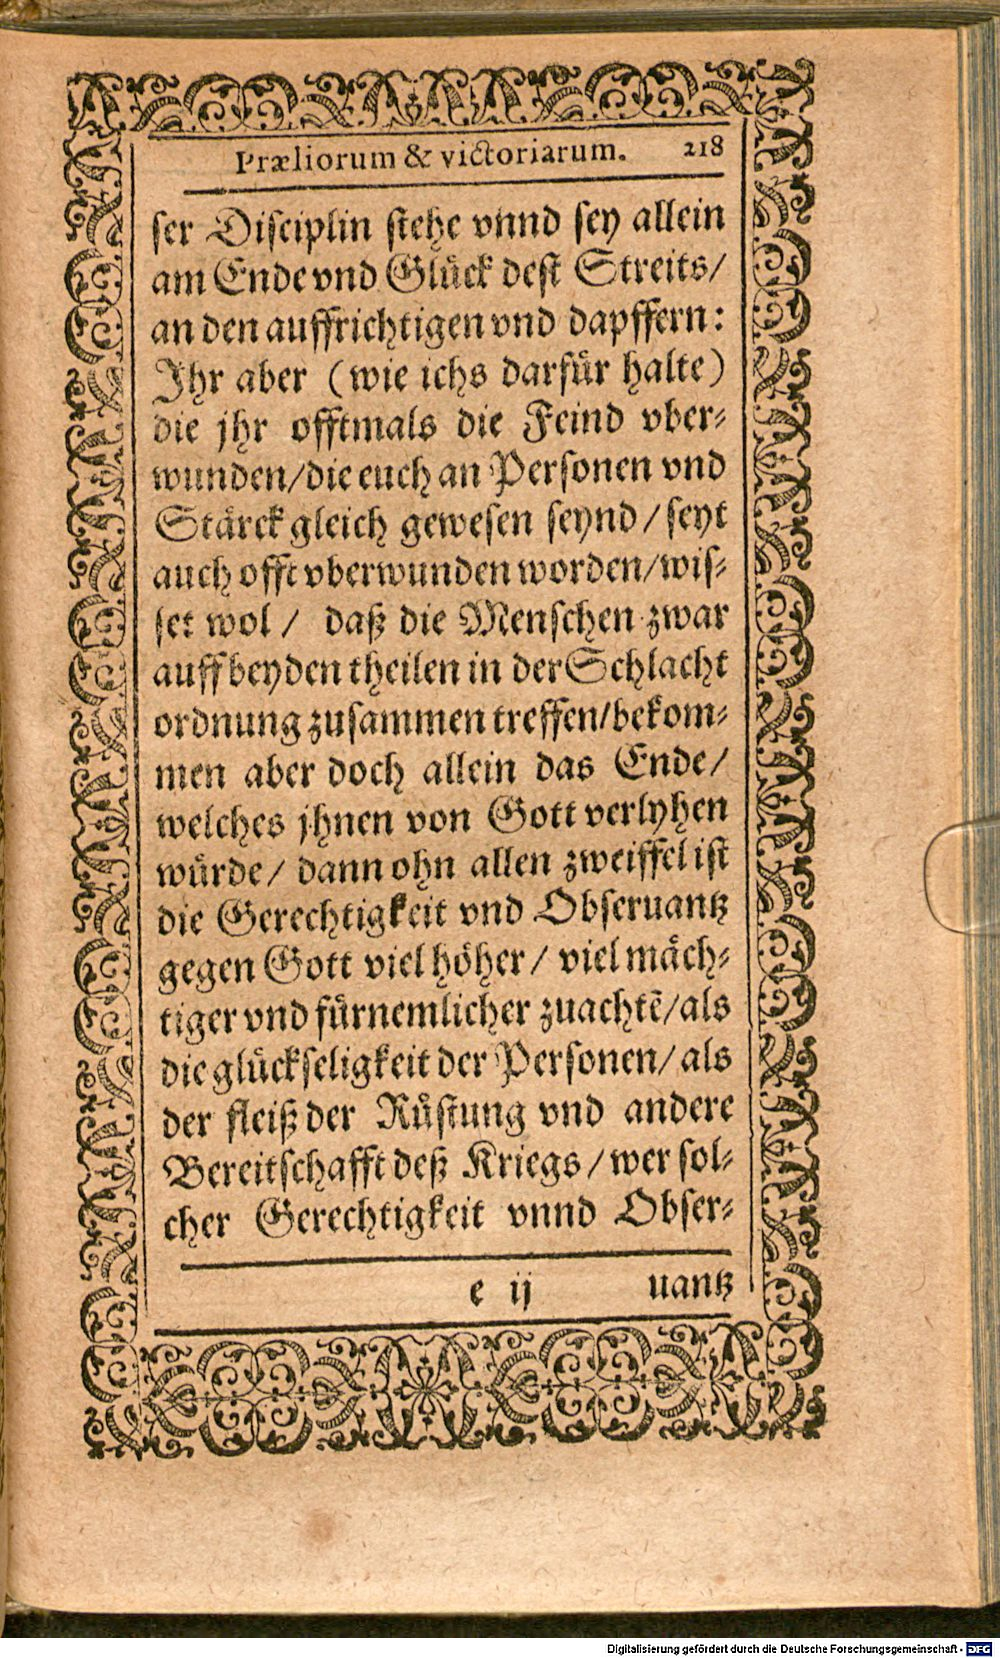 Præliorum & victoriarum. 218
ser Disciplin stehe vnnd sey allein
am Ende vnd Glück dest Streits/
an den auffrichtigen vnd dapffern:
Ihr aber (wie ichs darfür halte)
die jhr offtmals die Feind vber-
wunden/die euch an Personen vnd
Stärck gleich gewesen seynd/seyt
auch offt vberwunden worden/wis-
set wol/ daß die Menschen zwar
auff beyden theilen in der Schlacht
ordnung zusammen treffen/bekom-
men aber doch allein das Ende/
welches jhnen von Gott verlyhen
würde/ dann ohn allen zweiffel ist
die Gerechtigkeit vnd Obseruantz
gegen Gott viel höher/ viel mäch-
tiger vnd fürnemlicher zuachtẽ/als
die glückseligkeit der Personen/ als
der fleiß der Rüstung vnd andere
Bereitschafft deß Kriegs/wer sol-
cher Gerechtigkeit vnnd Obser-
e ij uantz
Digitalisierung gefördert durch die Deutsche Forschungsgemeinschaft - DFG